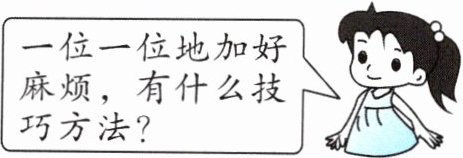 一位一位地加好
麻烦，有什么技
巧方法？